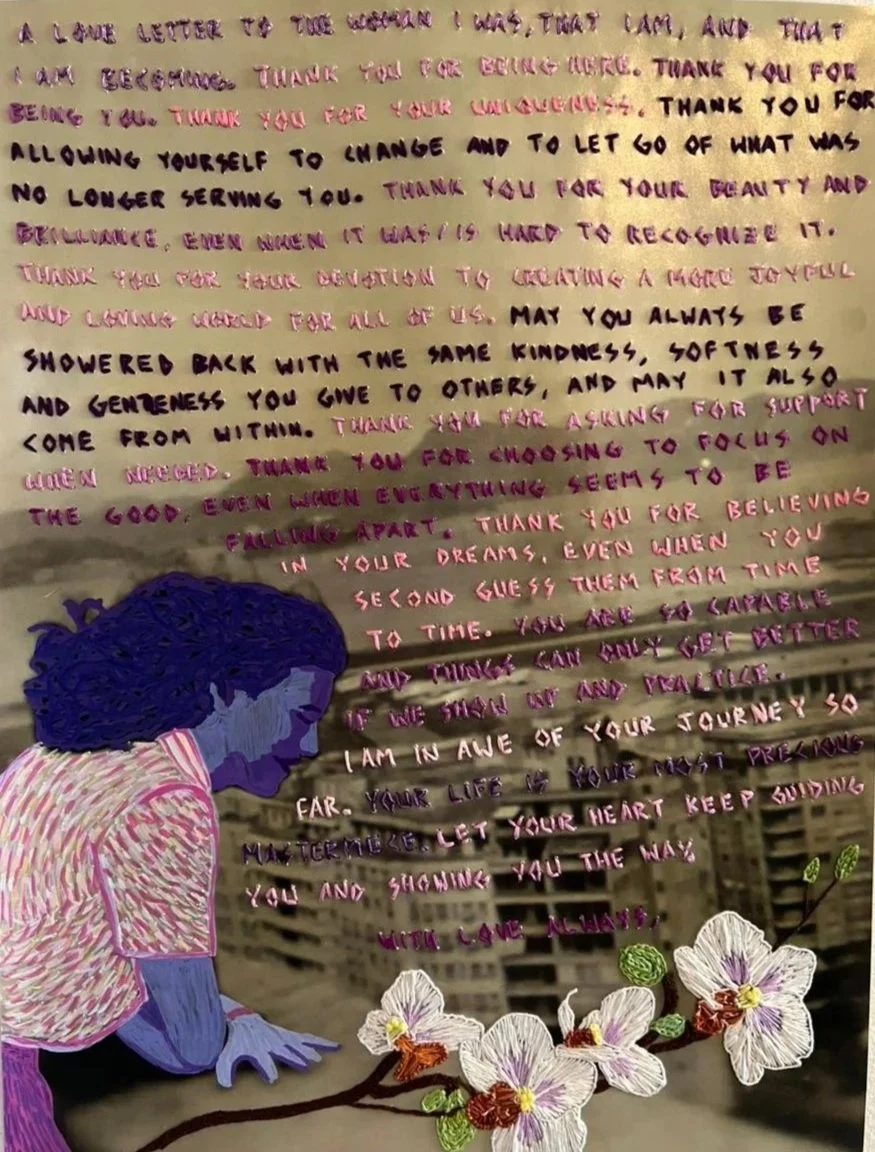 A LOVE LETTER TO THE WOMAN I WAS, THAT I AM, AND THAT
I AM BECOMING. THANK YOU FOR BEING HERE. THANK YOU FOR
BEING YOU. THANK YOU FOR YOUR UNIQUENESS. THANK YOU FOR
ALLOWING YOURSELF TO CHANGE AND TO LET GO OF WHAT WAS
NO LONGER SERVING YOU. THANK YOU FOR YOUR BEAUTY AND
BRILLIANCE, EVEN WHEN IT WAS/IS HARD TO RECOGNIZE IT.
THANK YOU FOR YOUR DEVOTION TO CREATING A MORE JOYFUL
AND LOVING WORLD FOR ALL OF US. MAY YOU ALWAYS BE
SHOWERED BACK WITH THE SAME KINDNESS, SOFTNESS
AND GENTLENESS YOU GIVE TO OTHERS, AND MAY IT ALSO
COME FROM WITHIN. THANK YOU FOR ASKING FOR SUPPORT
WHEN NEEDED. THANK YOU FOR CHOOSING TO FOCUS ON
THE GOOD, EVEN WHEN EVERYTHING SEEMS TO BE
FALLING APART. THANK YOU FOR BELIEVING
IN YOUR DREAMS, EVEN WHEN YOU
SECOND GUESS THEM FROM TIME
TO TIME. YOU ARE SO CAPABLE
AND THINGS CAN ONLY GET BETTER
IF WE SHOW UP AND PRACTICE.
I AM IN AWE OF YOUR JOURNEY SO
FAR. YOUR LIFE IS YOUR MOST PRECIOUS
MASTERPIECE. LET YOUR HEART KEEP GUIDING
YOU AND SHOWING YOU THE WAY.
WITH LOVE ALWAYS,